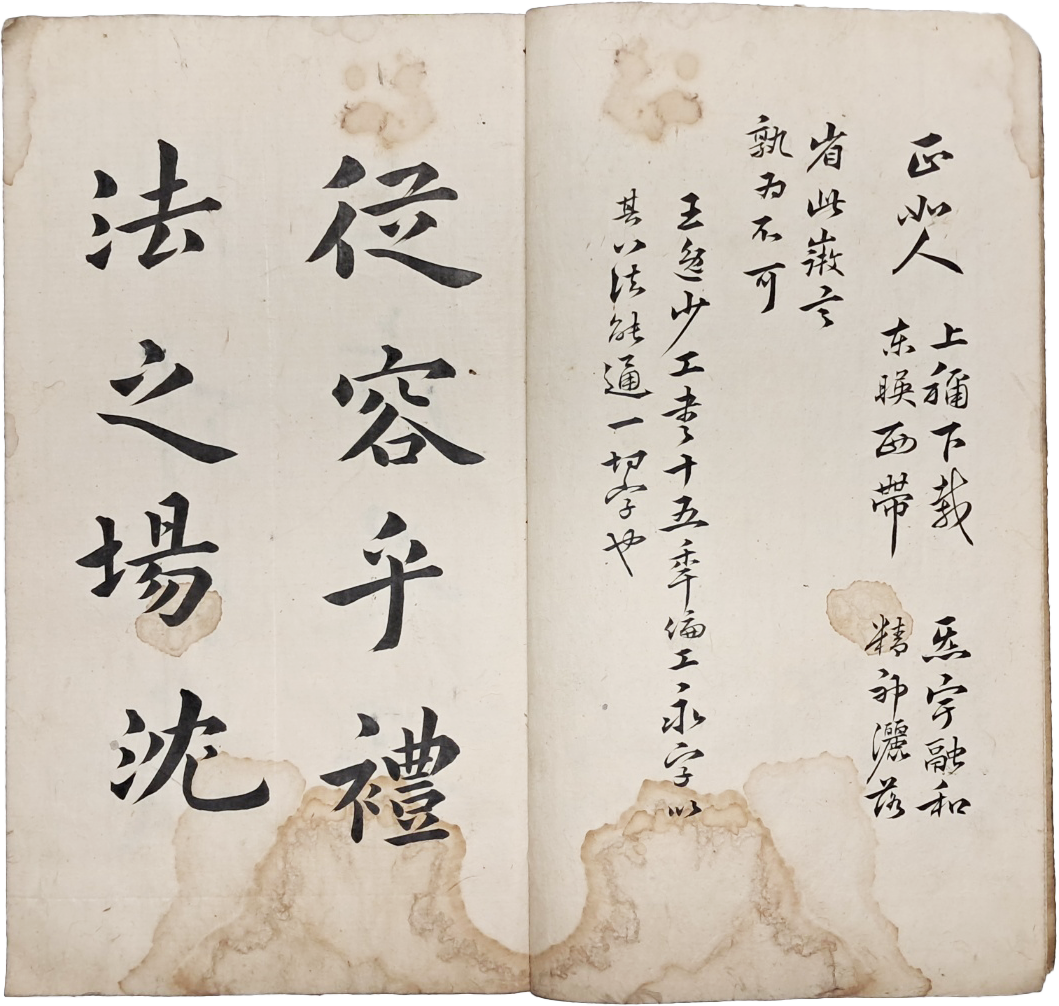 正如人
上稱下載
東暎西帶
炁宇融和
精神灑落
省此微言
孰為不可
王逸少工書十五秊偏工永字以
其八法能通一切字也
從容乎禮
法之場沈